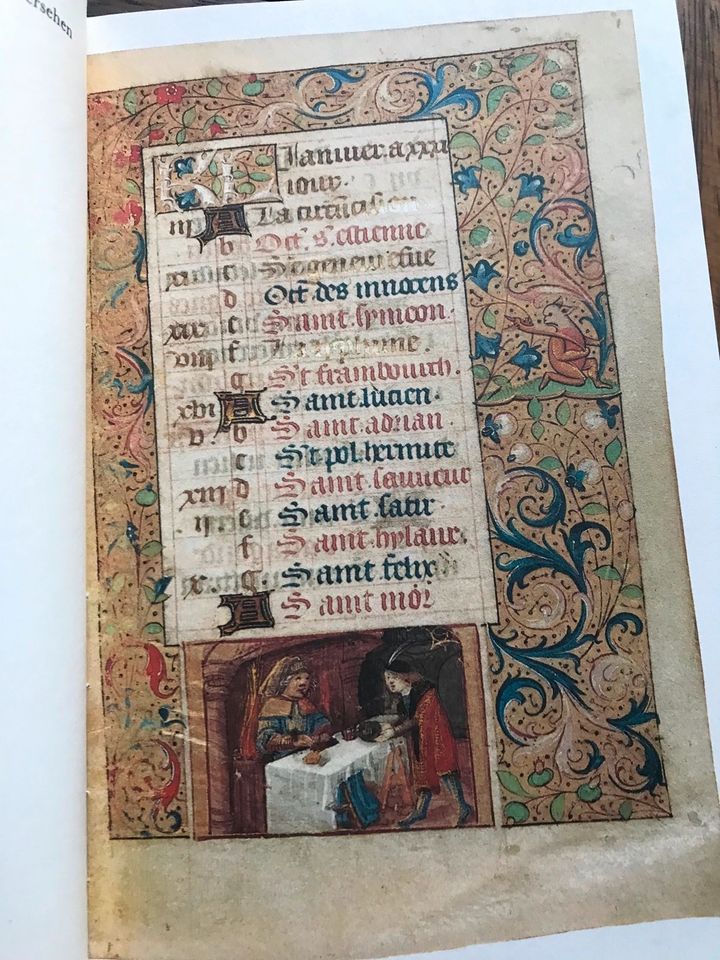 ersehen
KL Januier. a xxxi
iours.
iii A La circūcision
b Oct. s. estienne
c Ste geneuiefue
d Oct des innocens
xix e Saint symeon.
viii f La
g St frambourth.
xvi A Saint lucien
v. b Saint adrian
c St pol hermite
xiii d Saint sauueur
ii e Saint satir
f Saint hylaire
x. g Saint felix
A Saint mor